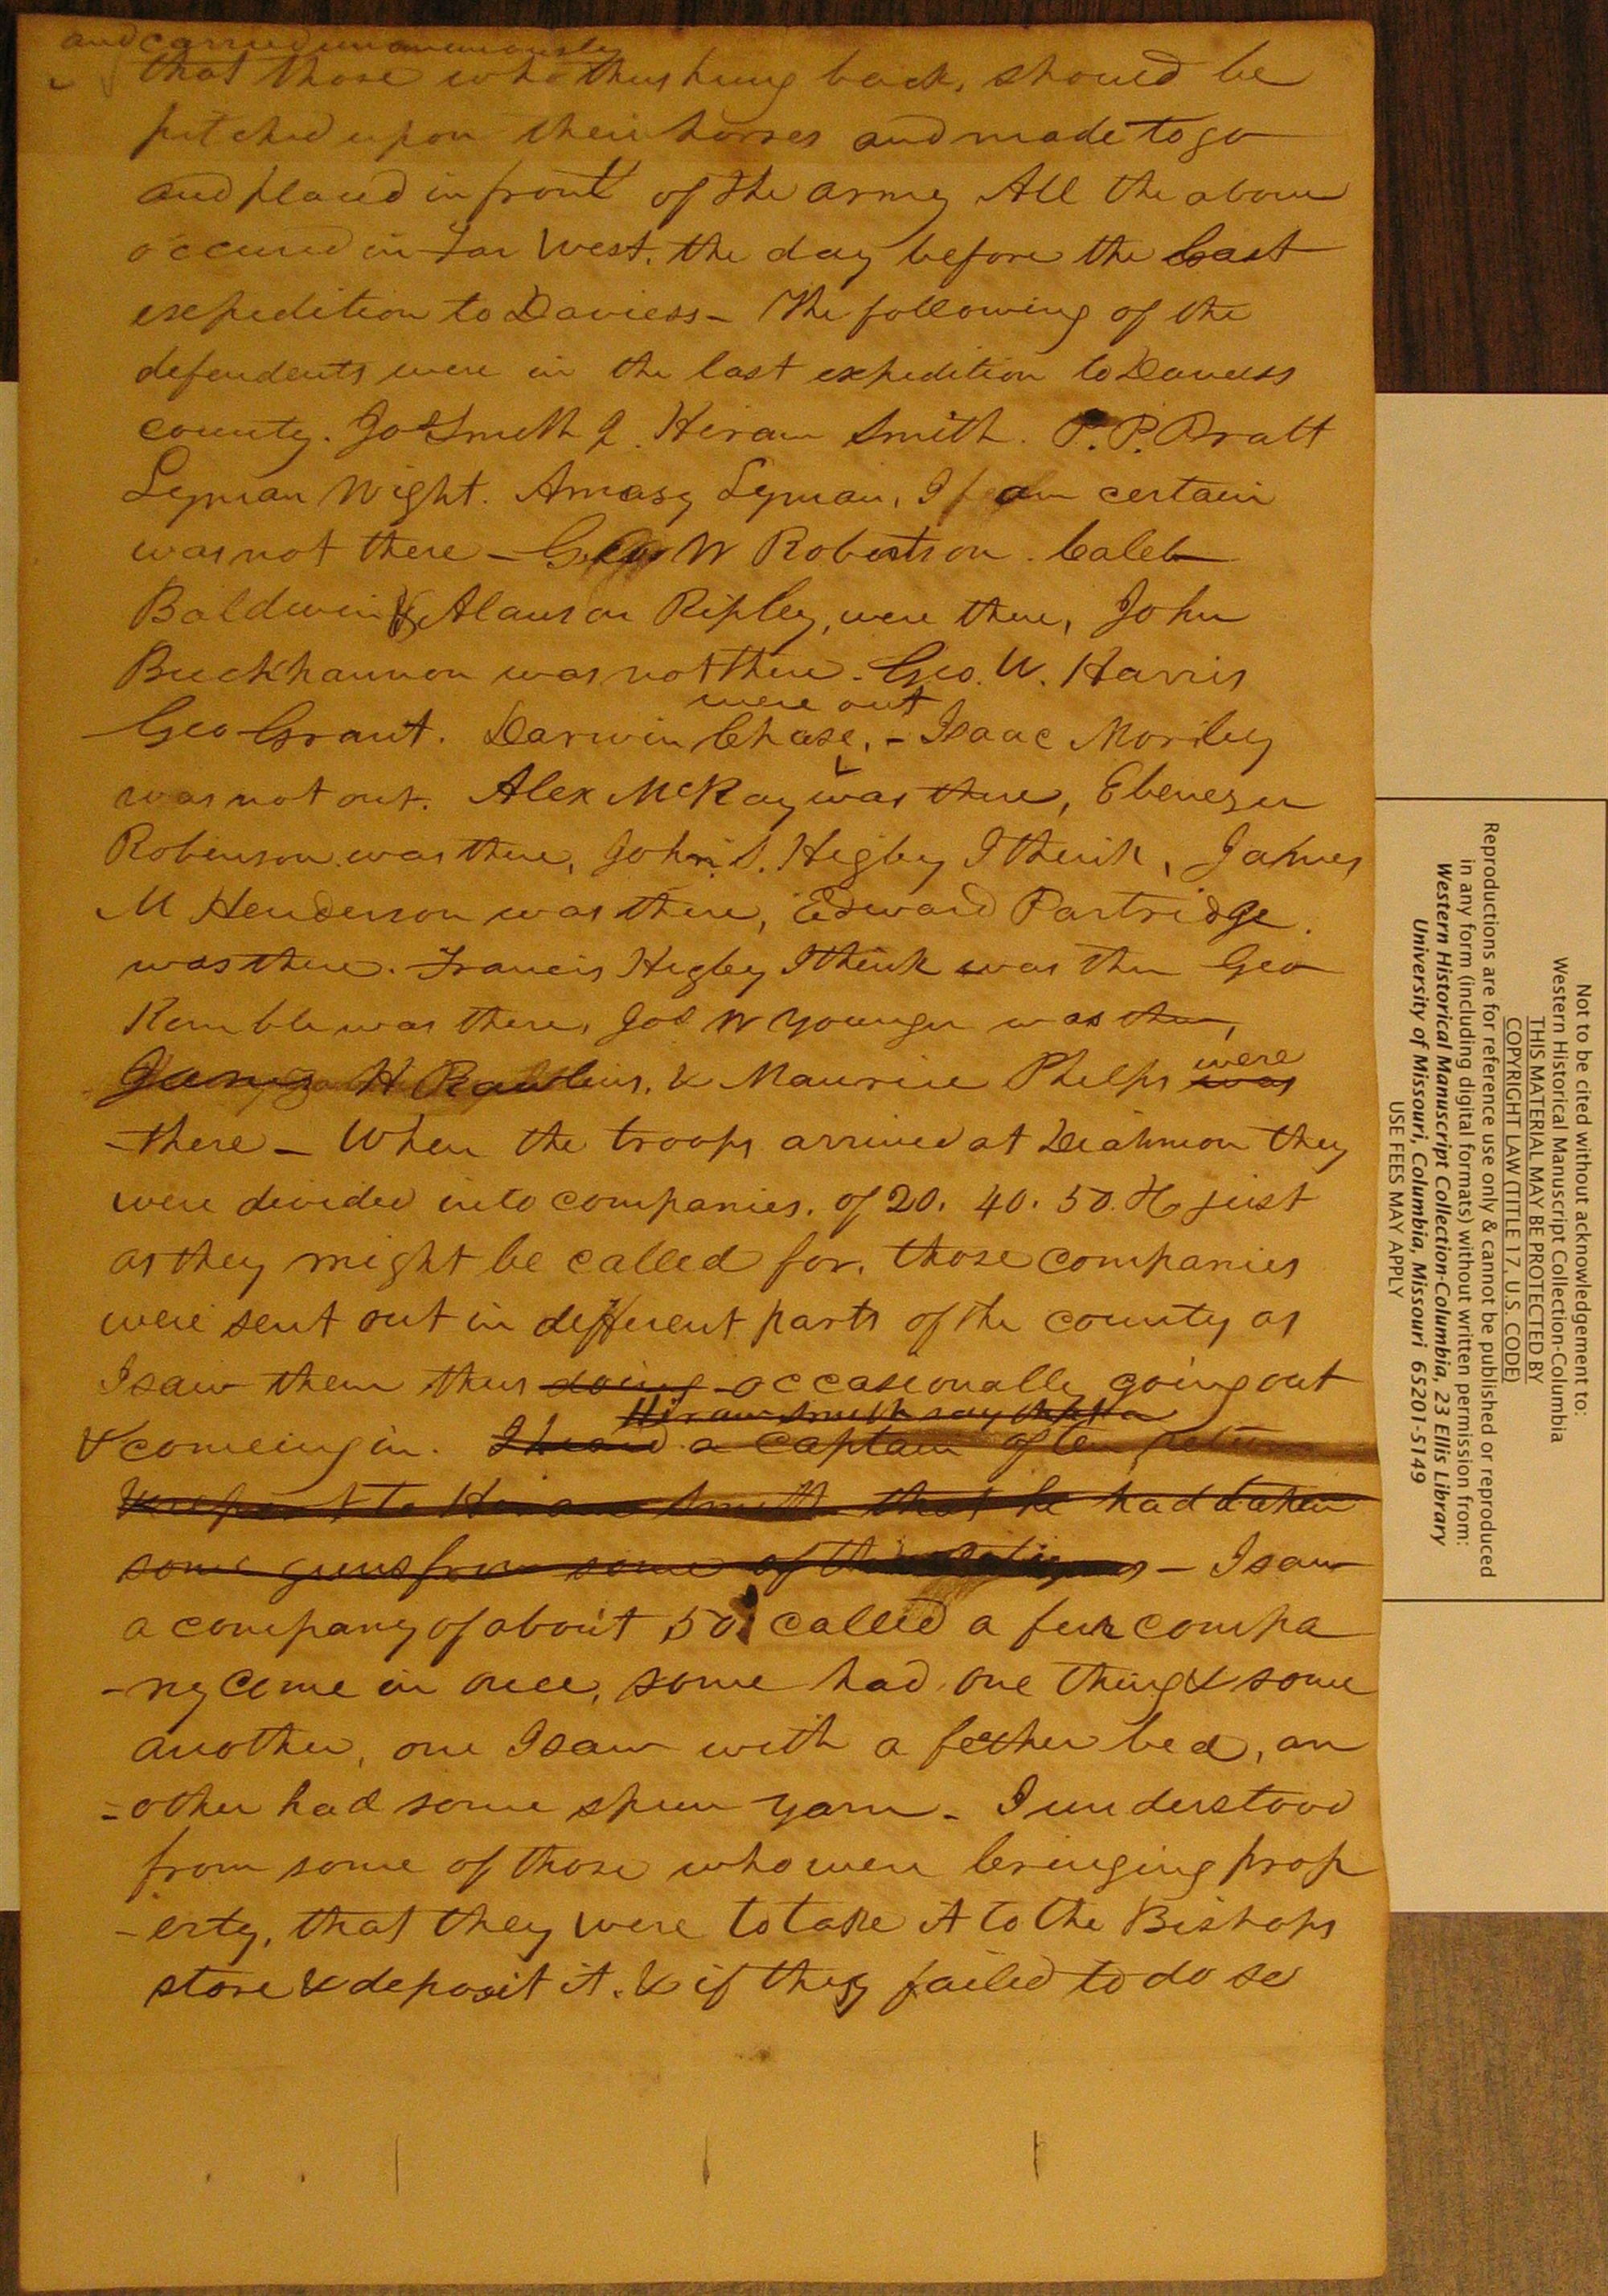 and carried unanimously
that those who thus hung back, should be
pitched upon their horses and made to go
and placed in front of the army All the above
occured in Far West. the day before the last
expedition to Daviess - The following of the
defendents were in the last expedition to Daveess
county. Jos Smith J. Hiram Smith. P. P. Pratt
Lyman Wight. Amasy Lyman, I am certain
was not there - Geo W Robertson. Caleb
Baldwin & Alanson Ripley, were there, John
Buckhannon was not there - Geo. W. Harris
were out
Geo Grant. Darwin Chase, - Isaac Morley
was not out. Alex McRay was there, Ebenezer
Robinson was there, John S. Higby I think, James
M Henderson was there, Edward Partridge.
was there. Francis Higby I think was then Geo
Kemble was there, Jos W Younger was then,
James H Rawlins, & Maurice Phelps were
was
there - When the troops arrived at Diahmon they
were divided into companies, of 20. 40. 50. &c just
as they might be called for. those companies
were sent out in different parts of the county as
I saw them thus doing occasionally going out
Hiram Smith say that a
& comeing in. I heard a captain often return
& report to Hiram Smith that he had taken
some guns from some of the - I saw
a company of about 50 called a fur compa
-ny come in once, some had one thing & some
another, one I saw with a fether bed, an
=other had some spun yarn - I understood
from some of those who were bringing prop
-erty, that they were to take it to the Bishops
store & deposit it. & if they failed to do so
Not to be cited without acknowledgement to:
Western Historical Manuscript Collection-Columbia
THIS MATERIAL MAY BE PROTECTED BY
COPYRIGHT LAW (TITLE 17, U.S. CODE)
Reproductions are for reference use only & cannot be published or reproduced
in any form (including digital formats) without written permission from:
Western Historical Manuscript Collection-Columbia, 23 Ellis Library
University of Missouri, Columbia, Missouri 65201-5149
USE FEES MAY APPLY